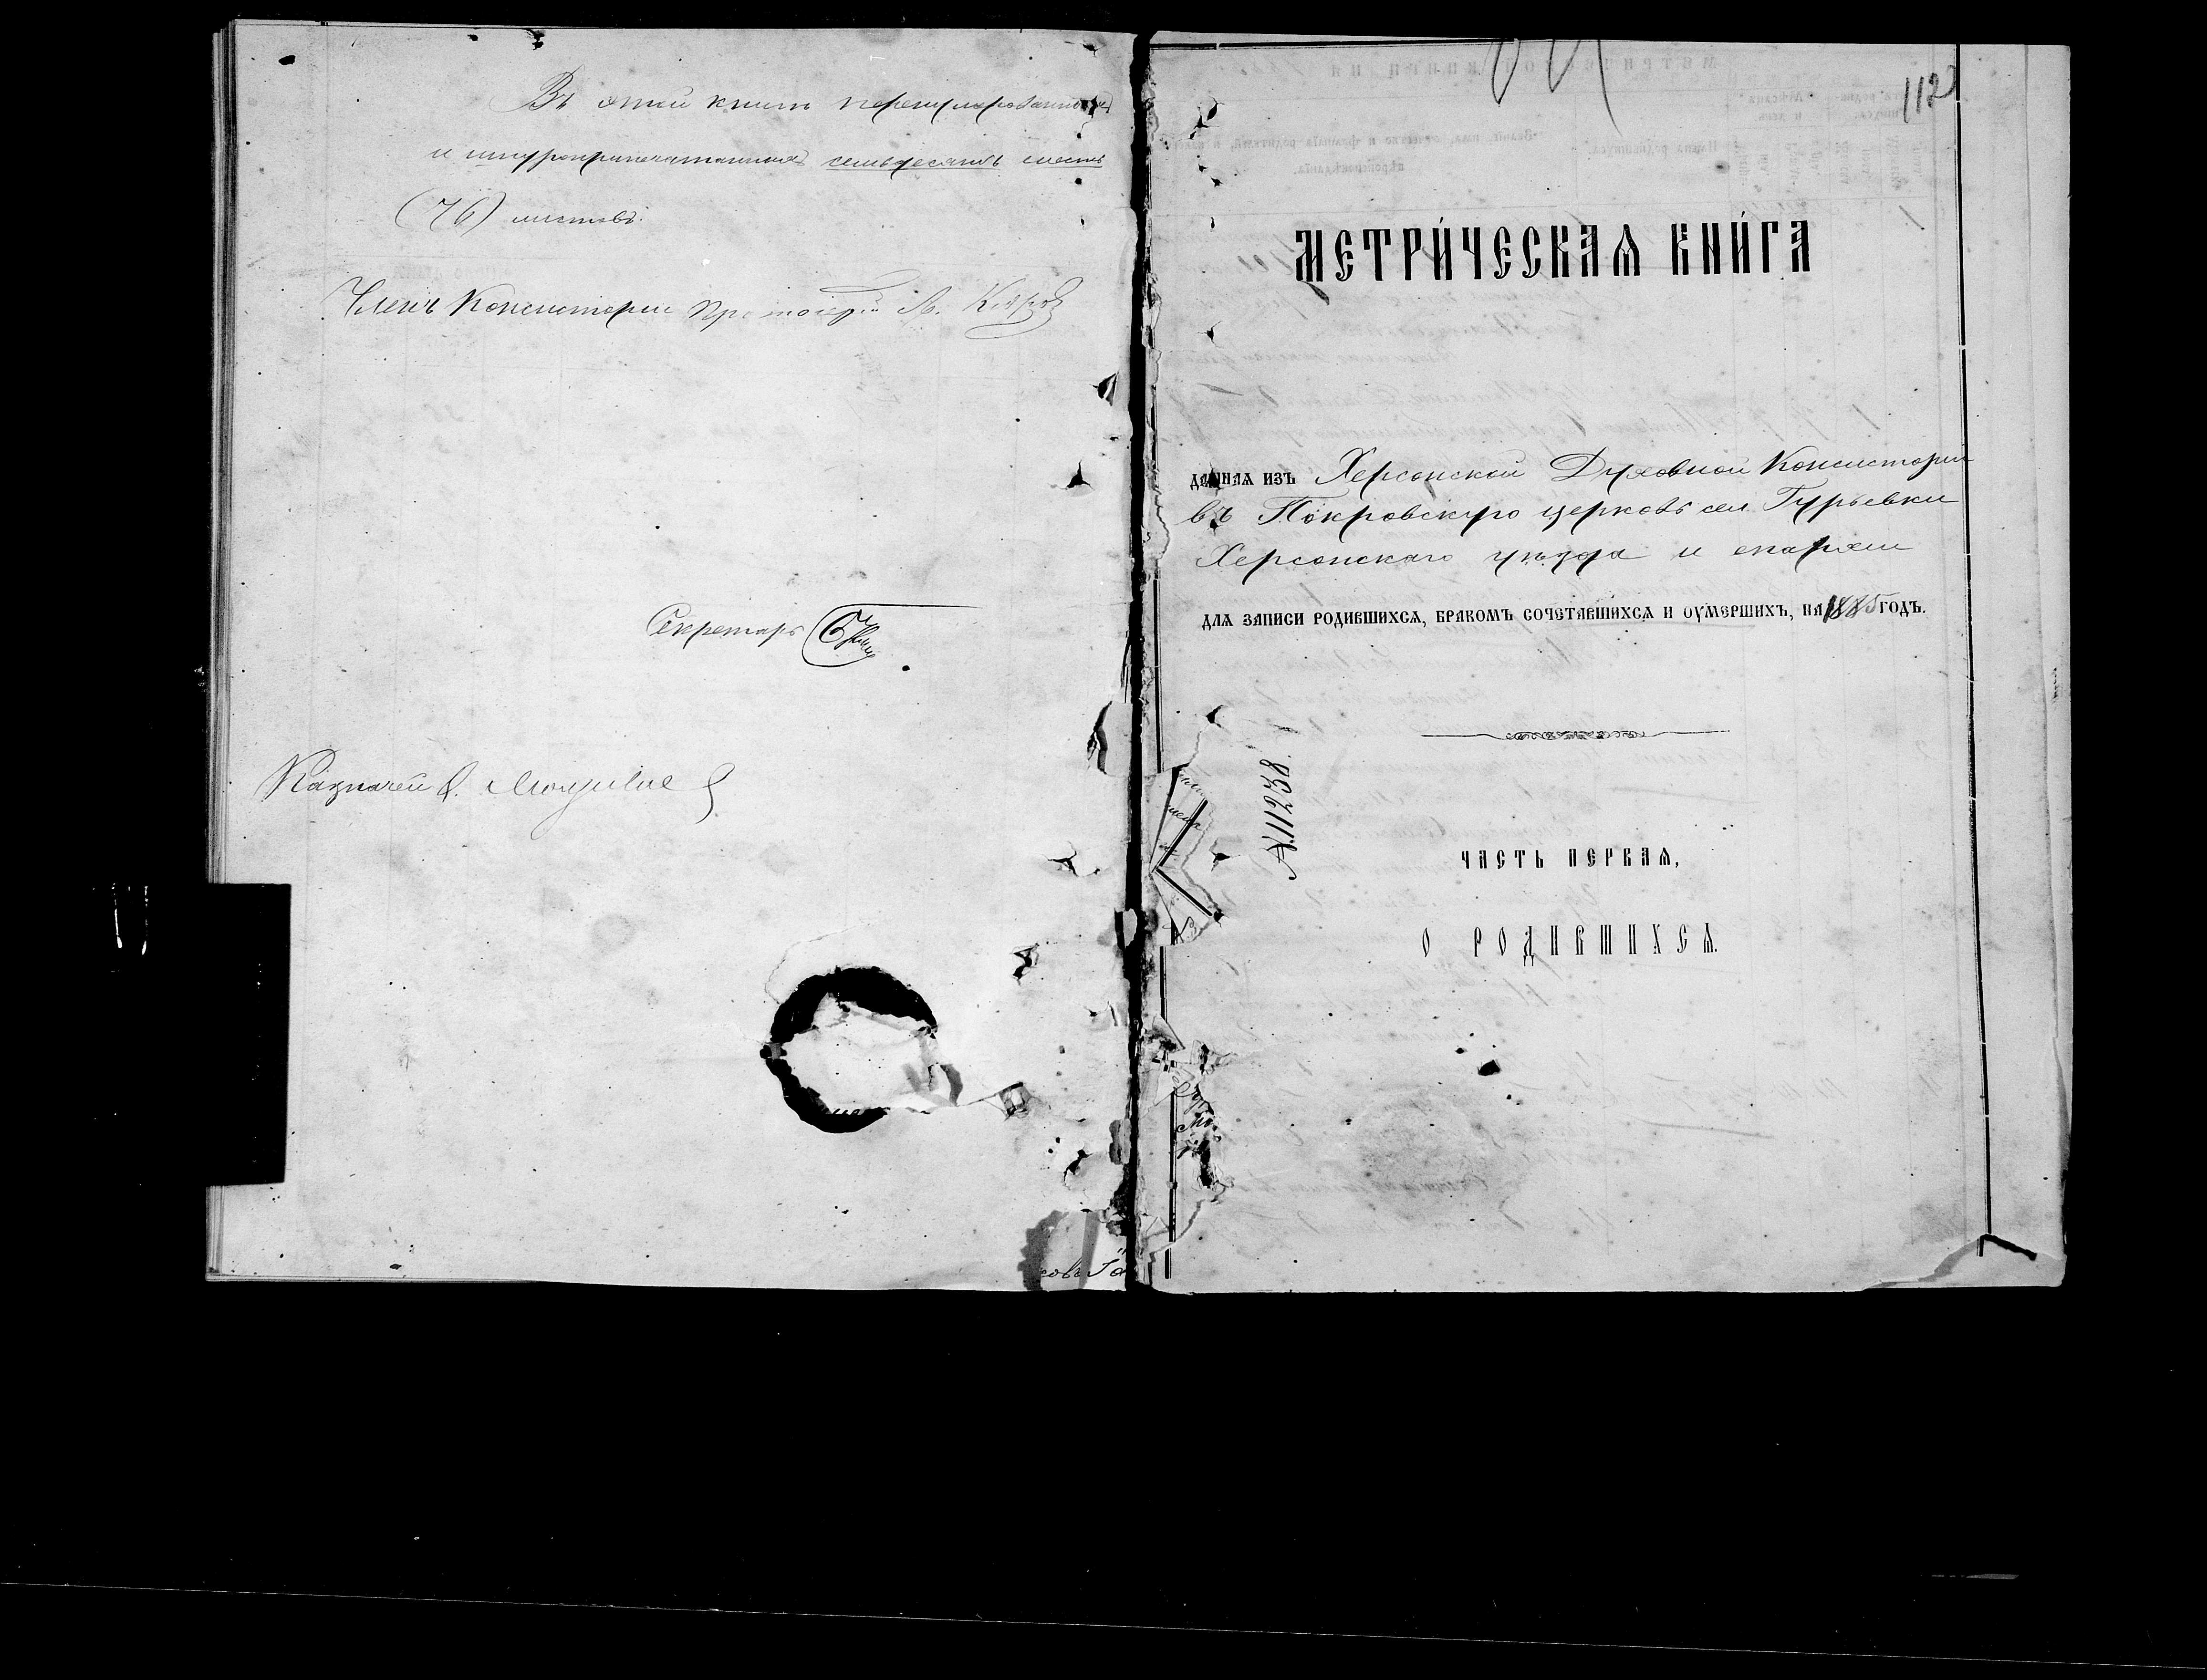 Въ этой книгѣ перенумерованныхъ
и шнуроприпечатанныхъ семьдесятъ шесть
(76) листовъ.
Членъ Консисторіи Протоіерей
Секретарь
Казначей
112
МЕТРИ́ЧЕСКАѦ КНИ́ГА
даннаѧ изъ Херсонской Духовной Консисторіи
въ Покровскую церковь сел. Гурьевки
Херсонскаго уѣзда и епархіи
длѧ записи родившихсѧ, бракомъ сочетавшихсѧ и оумершихъ, на 1885 годъ.
№ 11238.
ЧАСТЬ ПЕРВАѦ,
О РОДИВШИХСѦ.